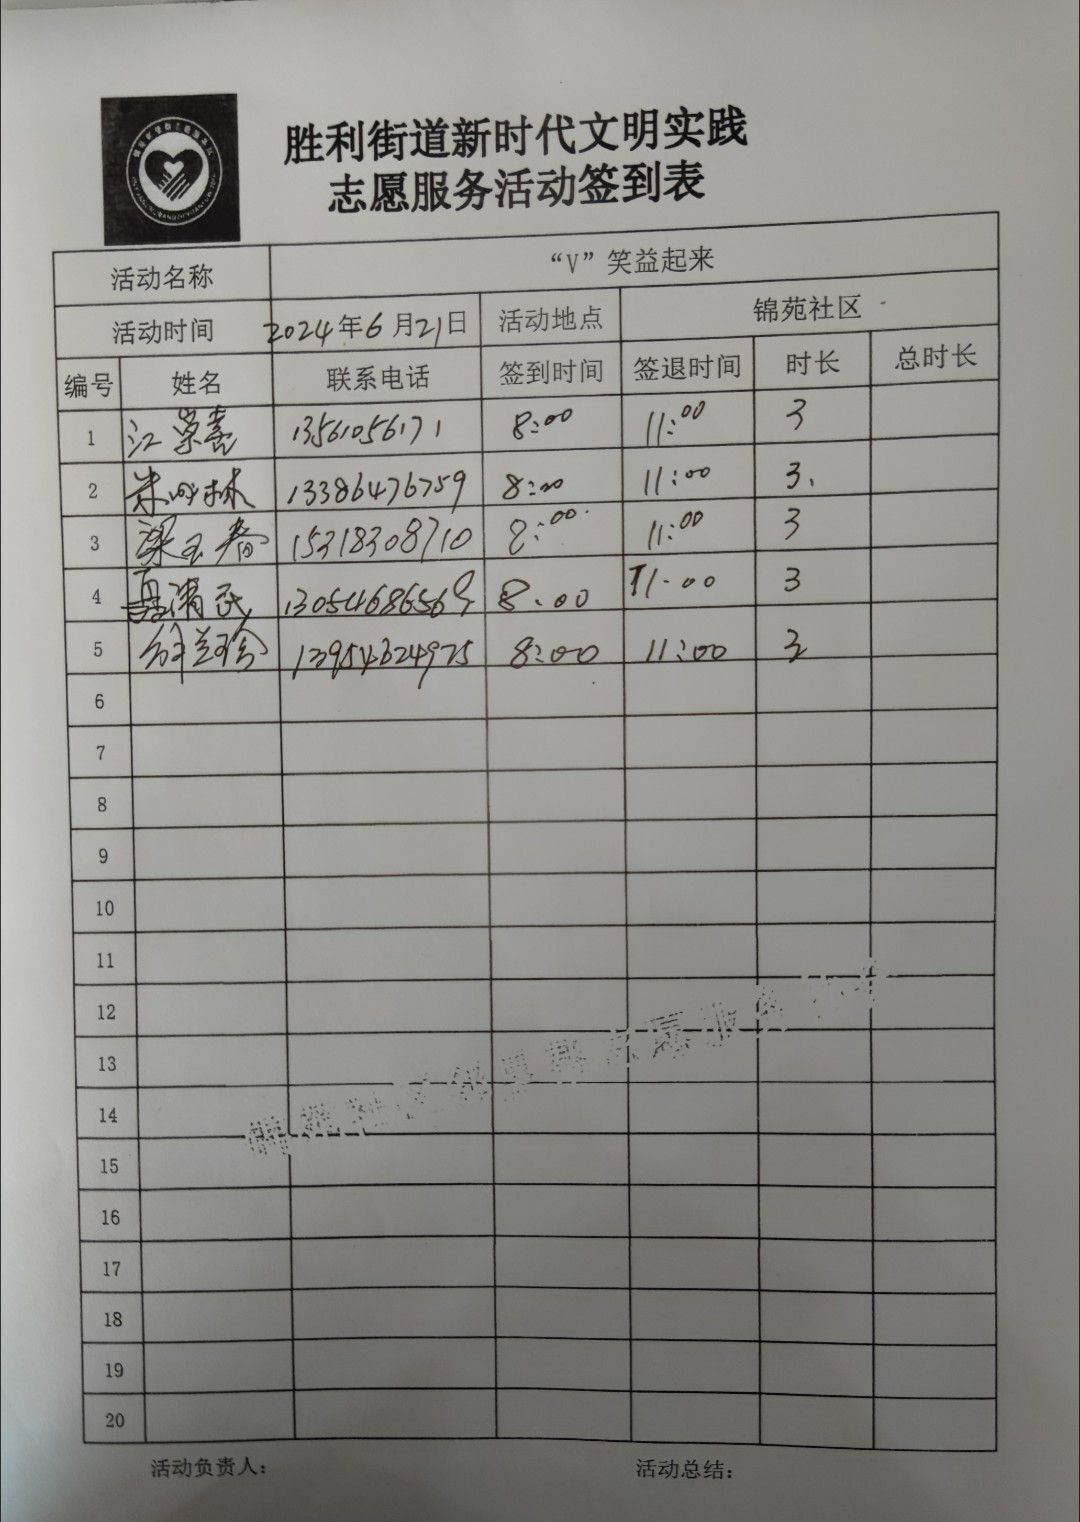 胜利街道新时代文明实践
志愿服务活动签到表
活动名称 “V”笑益起来
活动时间 2024年6月21日 活动地点 锦苑社区
编号 姓名 联系电话 签到时间 签退时间 时长 总时长
1 江 13561056171 8:00 11:00 3
2 朱 林 13386476759 8:00 11:00 3
3 梁玉春 15318308710 8:00 11:00 3
4 聂清民 13054686569 8:00 11:00 3
5 徐兰珍 13954324975 8:00 11:00 3
6
7
8
9
10
11
12
13
14
15
16
17
18
19
20
活动负责人: 活动总结: